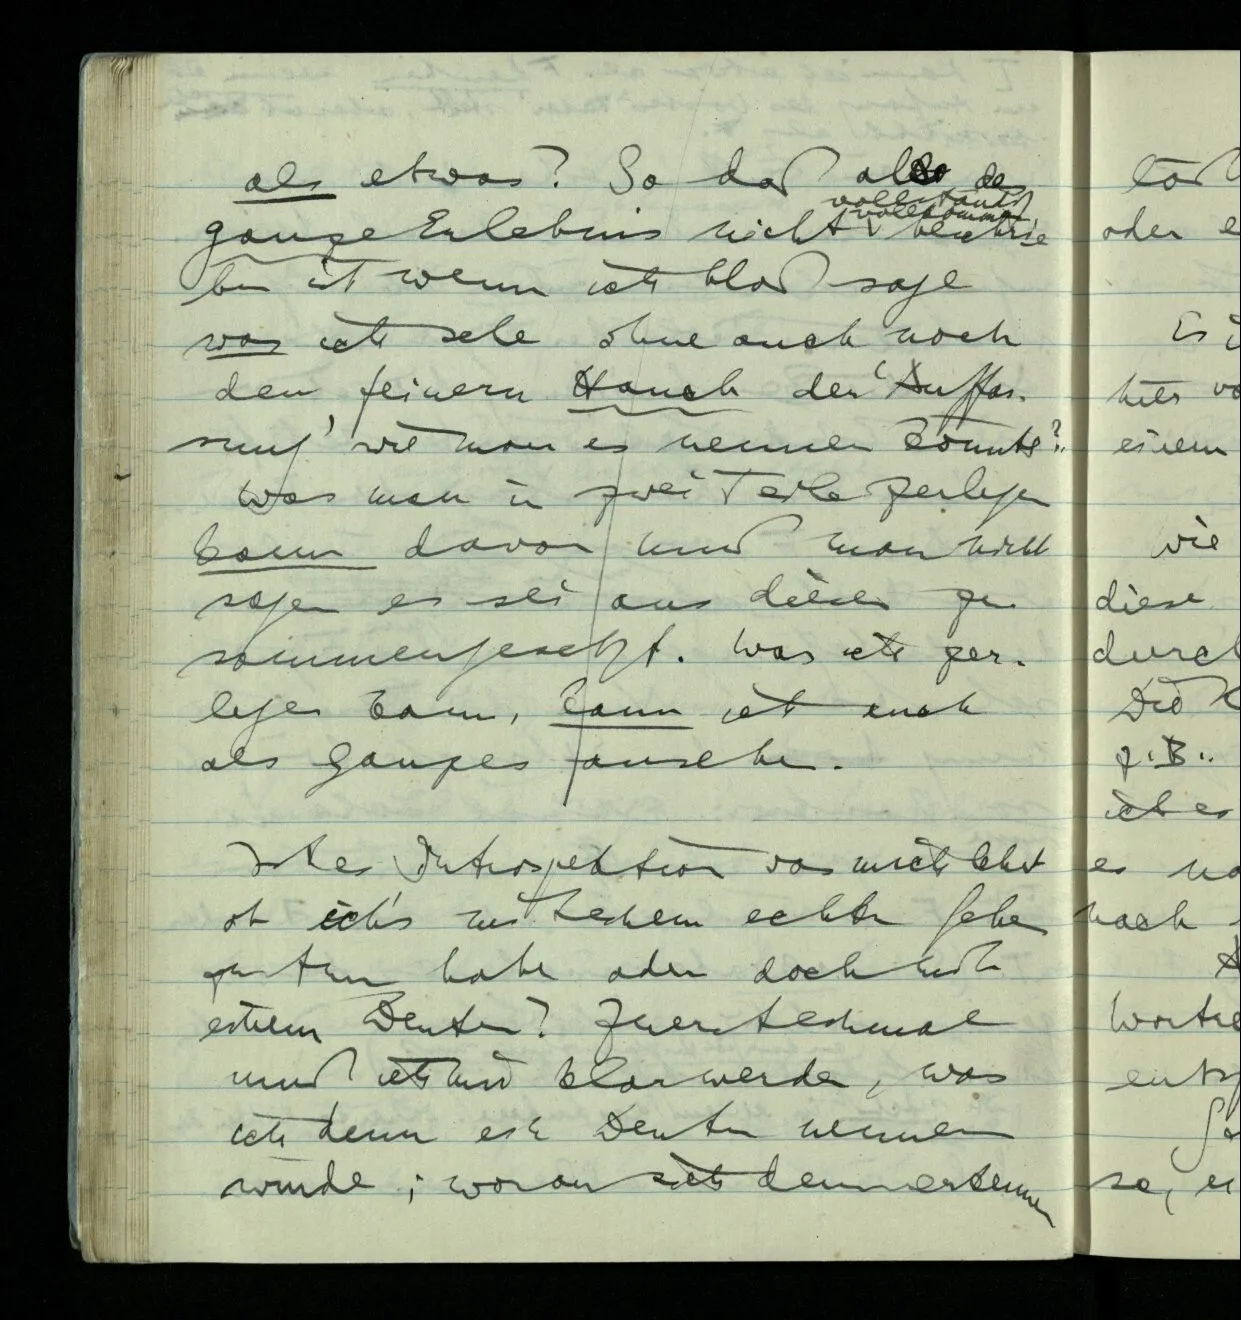 als etwas? So daß also das
vollständig
vollkommen
ganze Erlebnis nicht beschrie
ben ist wenn ich bloß sage
was ich sehe ohne auch noch
den feinern Hauch der 'Auffas-
sung' wie man es nennen könnte?
Was man in zwei Teile zerlegen
kann davon muß man nicht
sagen es sei aus diesen zu
sammengesetzt. Was ich zer-
legen kann, kann ich auch
als Ganzes ansehen.
Ist es Introspektion was mich lehrt
ob ich's mit einem echten Sehen
zu tun habe oder doch mit
einem Deuten? Zuerst einmal
muß ich mir klar werden, was
ich denn ein Deuten nennen
würde; woran sich denn erkennen
oder e
Es i
hier vo
einem
wie
diese
durch
z.B..
ich es
es
nach
Worte
so,